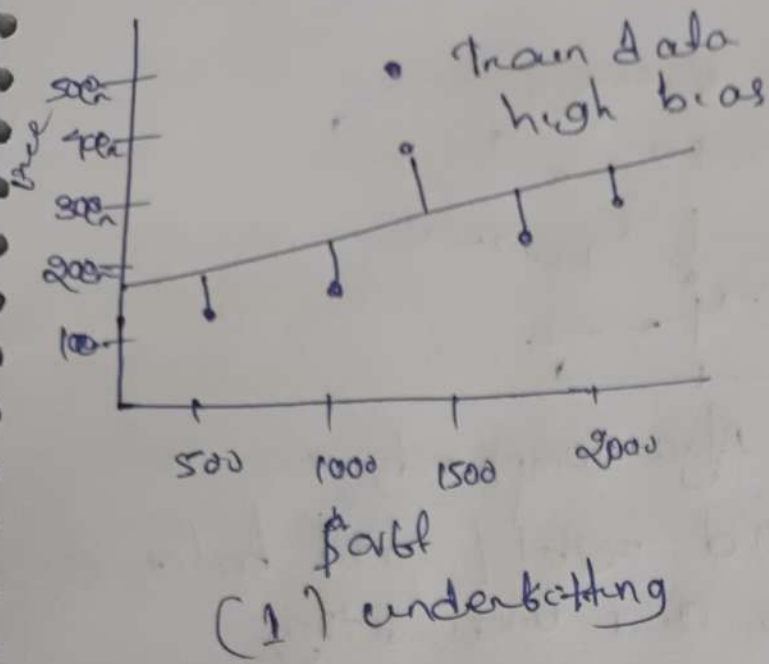 Train data
high bias
price
500
400
300
200
100
500
1000
1500
2000
(1) underfitting